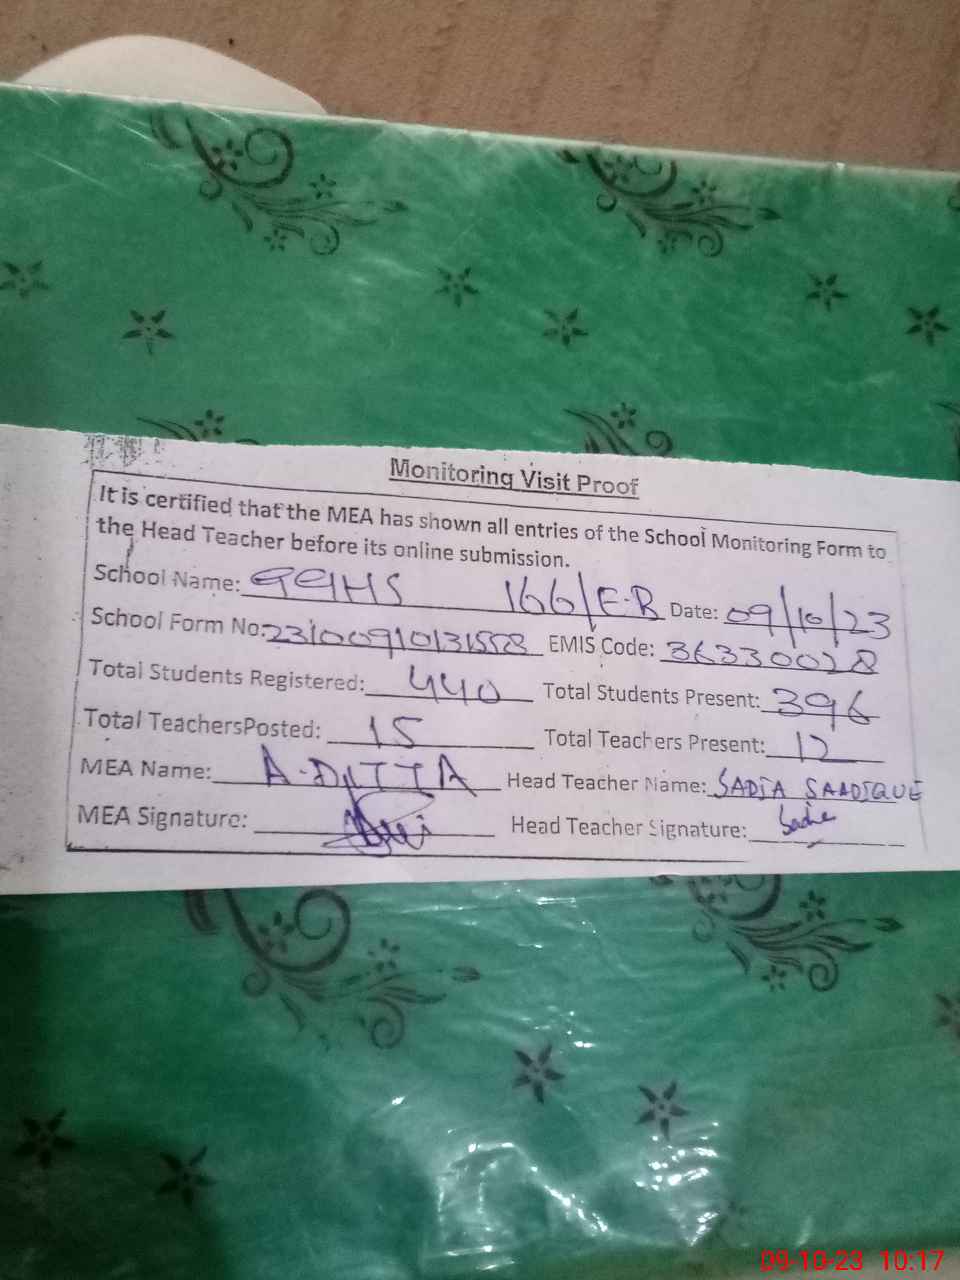 Monitoring Visit Proof
It is certified that the MEA has shown all entries of the School Monitoring Form to
the Head Teacher before its online submission.
School Name: GGHS 166/E-B Date: 09/10/23
School Form No: EMIS Code: 36330028
Total Students Registered: 440 Total Students Present: 396
Total TeachersPosted: 15 Total Teachers Present: 12
MEA Name: A-DITTA Head Teacher Name: SADIA SAADIQUE
MEA Signature: Head Teacher Signature: Sadie
09-10-23 10:17